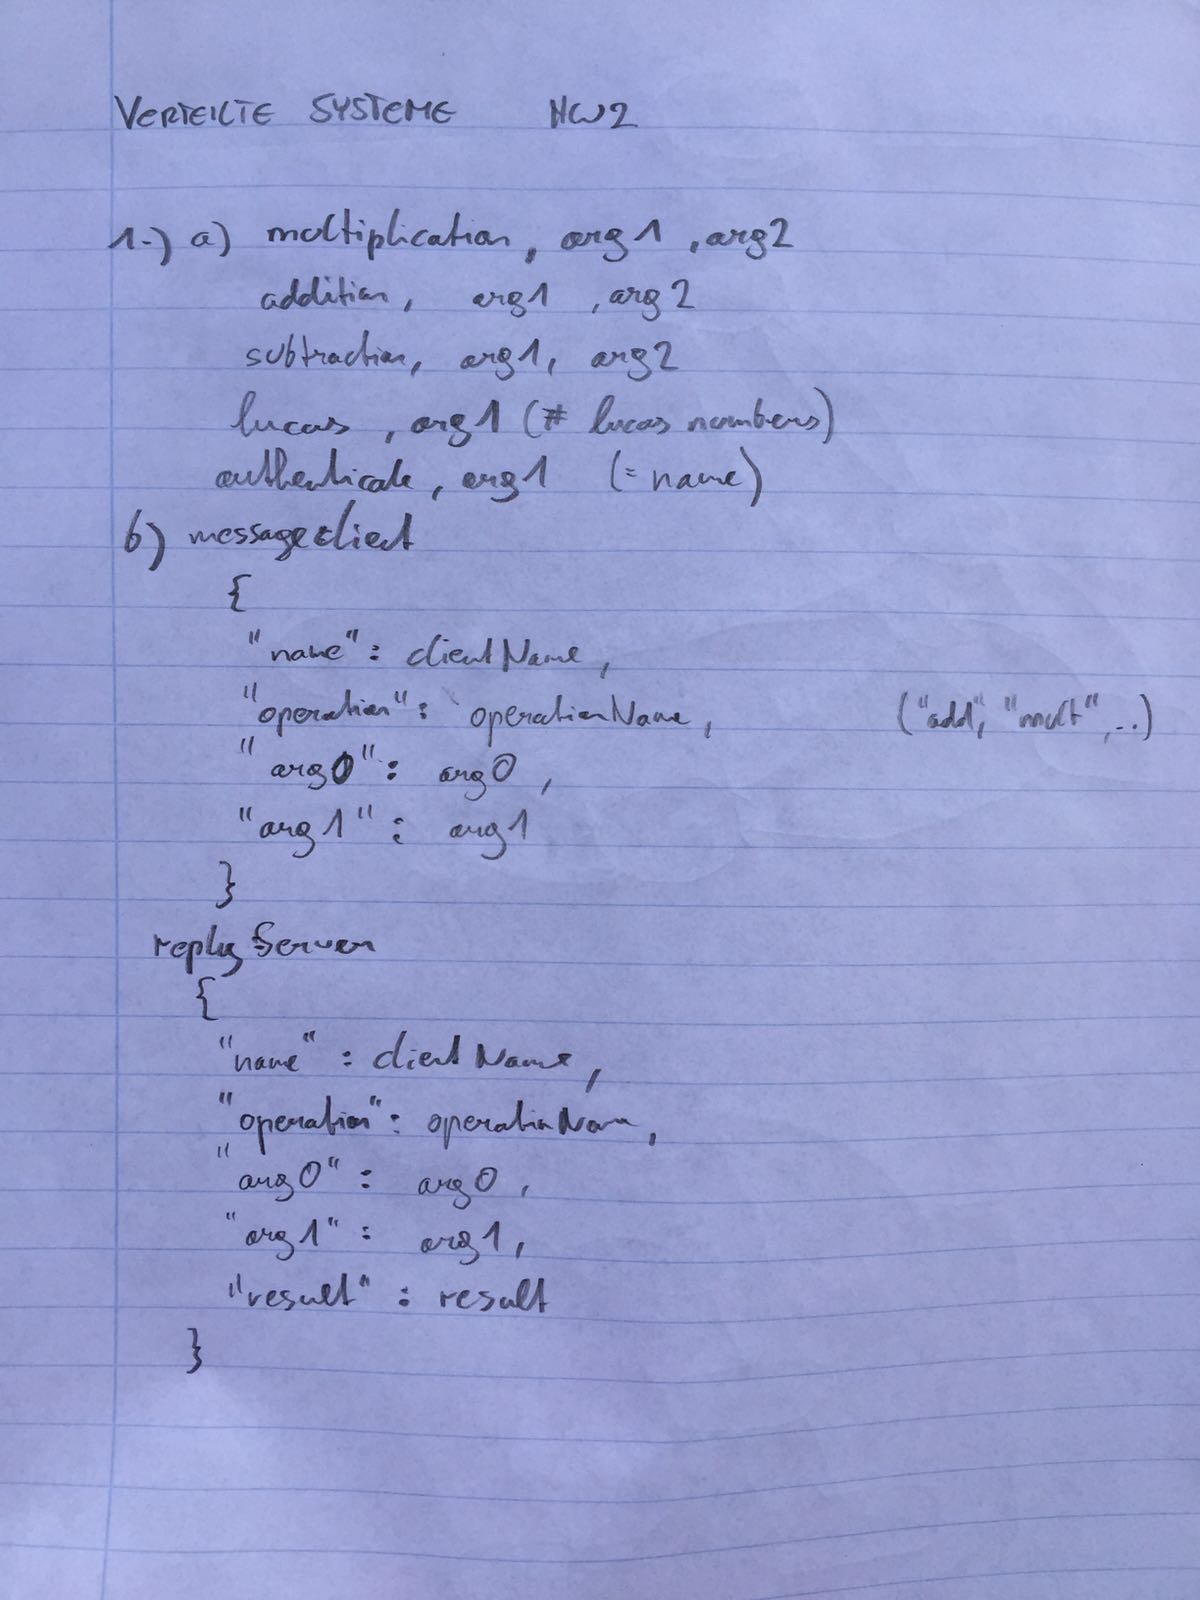 VERTEILTE SYSTEME HW2
1.) a) multiplication, arg1, arg2
addition, arg1, arg2
subtraction, arg1, arg2
lucas, arg1 (# lucas numbers)
authenticate, arg1 (= name)
b) message client
{
"name": clientName,
"operation": operationName, ("add", "mult", ..)
"arg0": arg0,
"arg1": arg1
}
reply Server
{
"name": clientName,
"operation": operationName,
"arg0": arg0,
"arg1": arg1,
"result": result
}